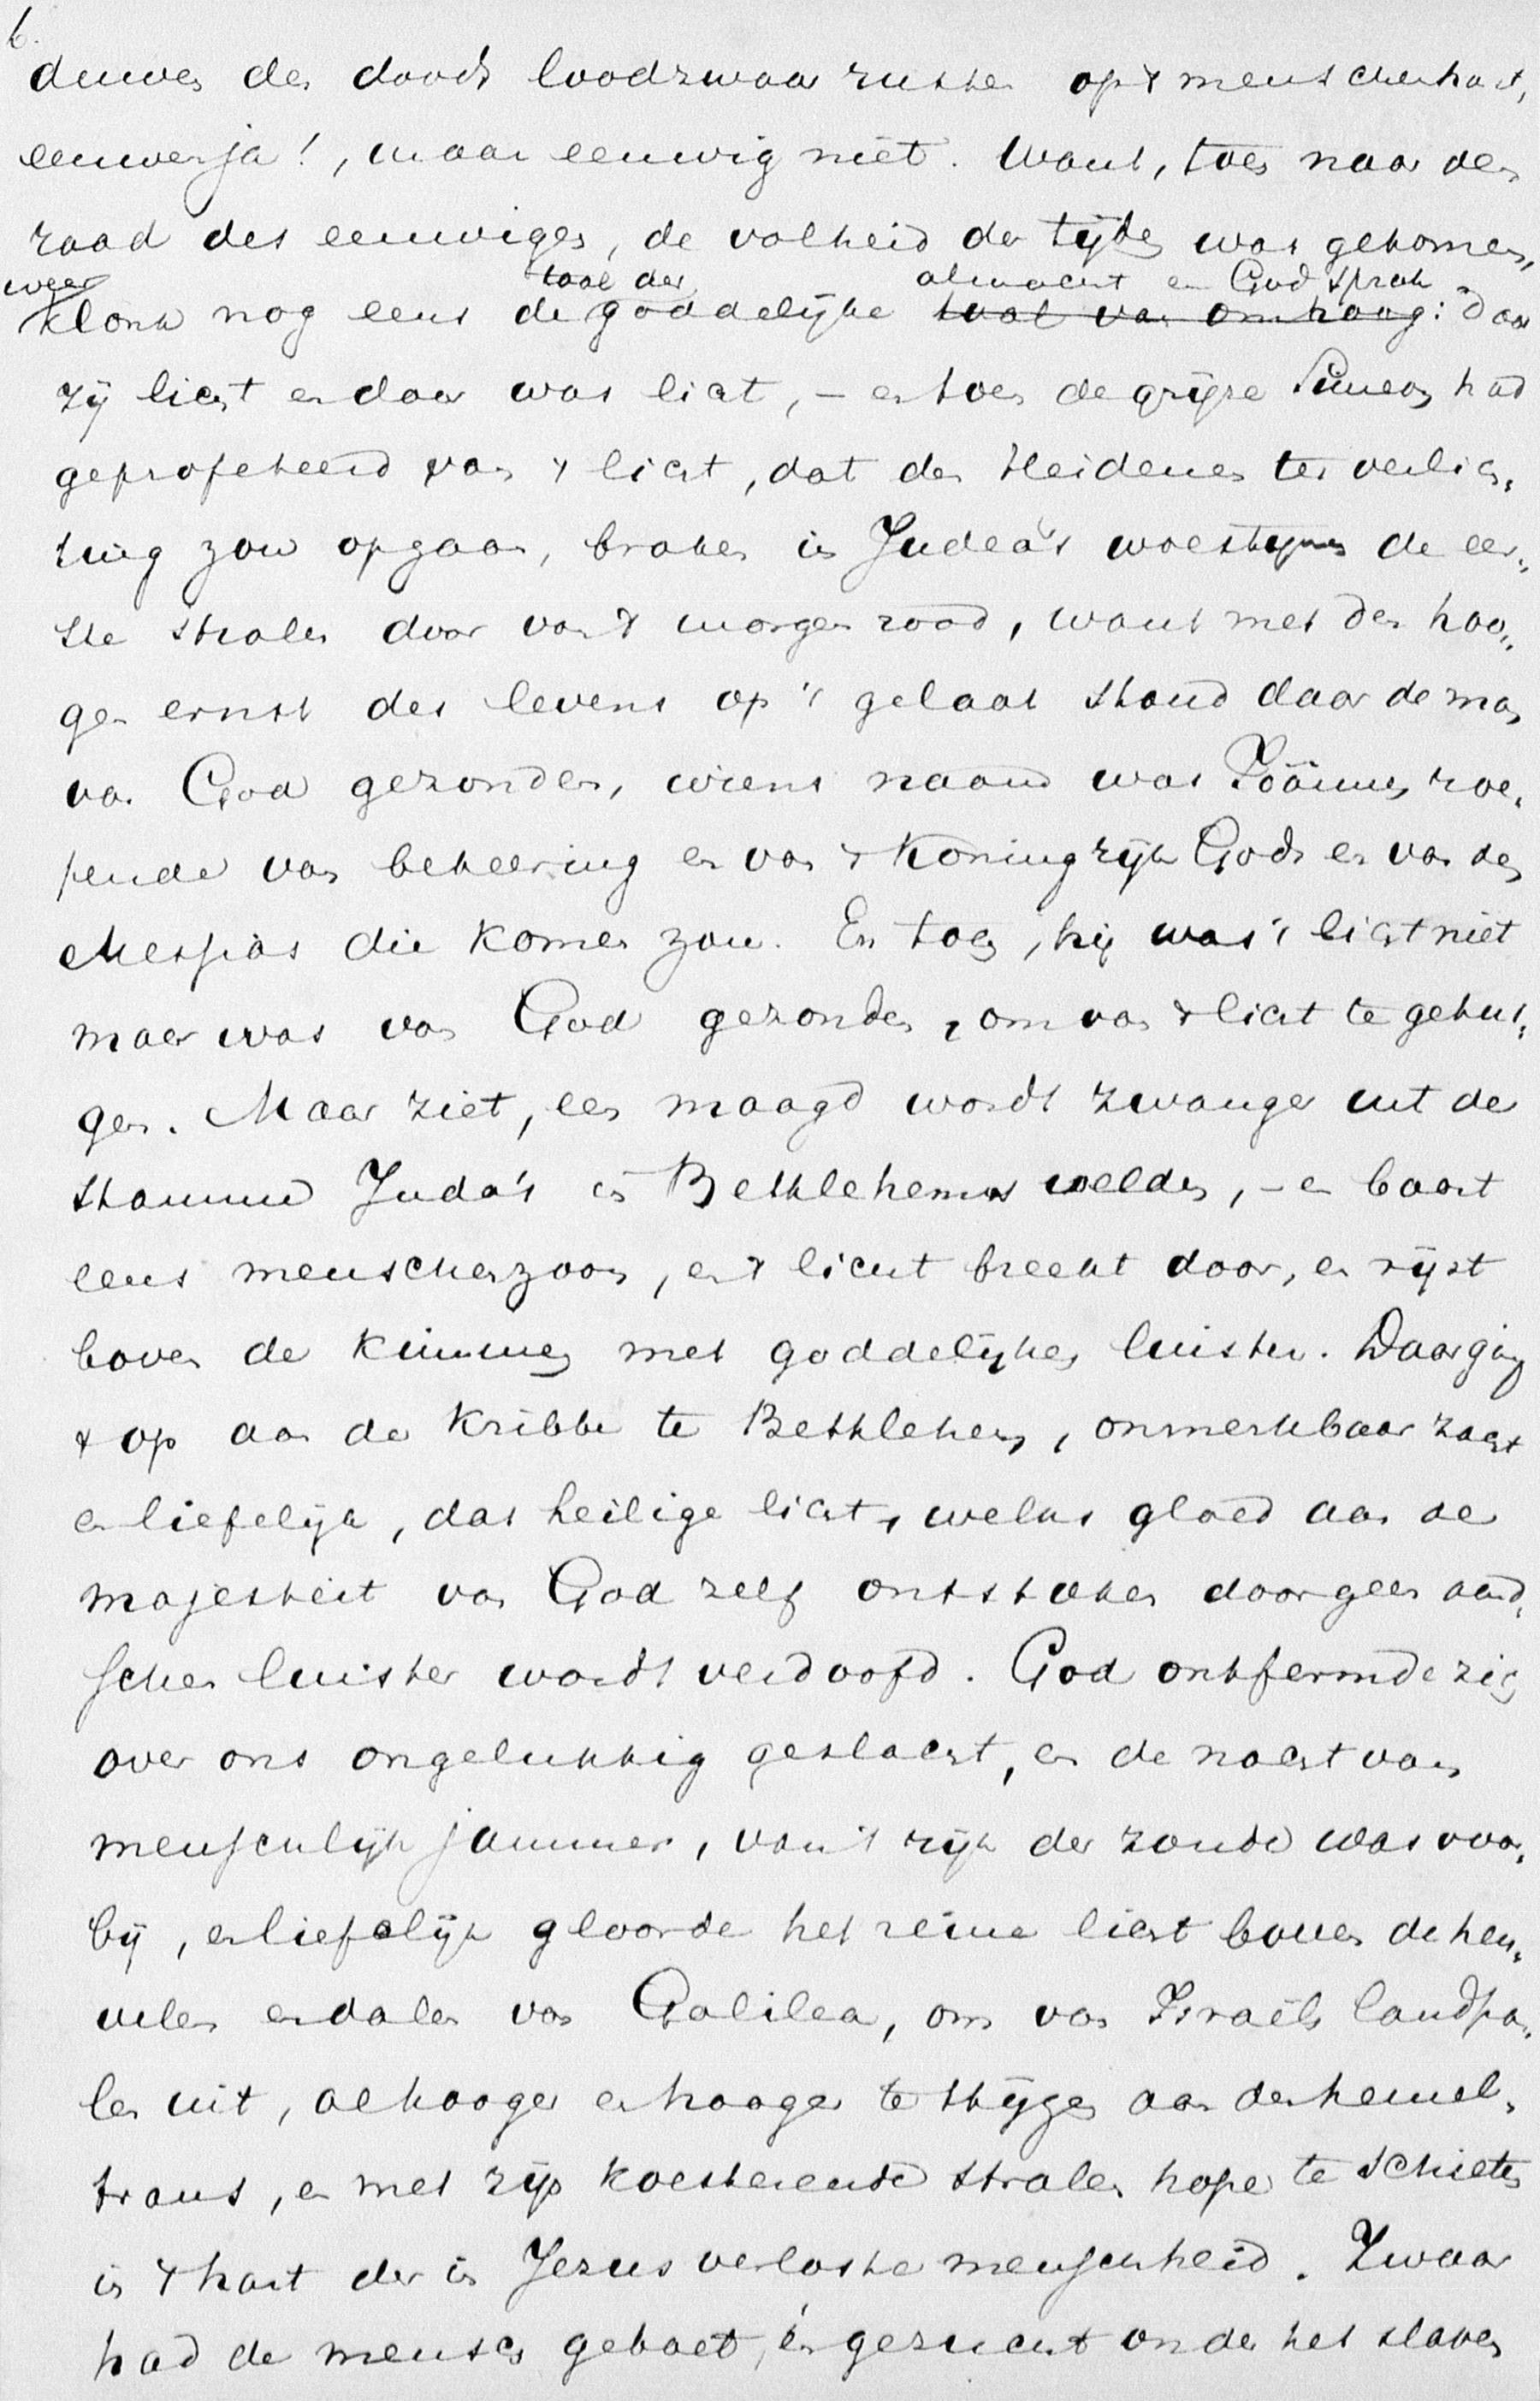 6.
duwen des doods loodzwaar rusten op 't menschenhart,
eeuwen ja!, maar eeuwig niet. Want, toen naar den
raad des eeuwigen, de volheid der tijden was gekomen,
weer taal der almacht en God sprak
klonk nog eens de goddelijke taal van omhoog: "Daar
zij licht en daar was licht, – en toen de grijze Simeon had
geprofeteerd van 't licht, dat den Heidenen ter verlich„
ting zou opgaan, braken in Judea's woestijnen de eer„
ste stralen door van 't morgenrood, want met den hoo„
gen ernst des levens op 't gelaat stond daar de man
van God gezonden, wiens naam was Joännes, roe„
pende van bekeering en van 't Koningrijk Gods en van den
Messias die komen zou. En toch, hij was 't licht niet
maar was van God gezonden, om van 't licht te getui„
gen. Maar ziet, een maagd wordt zwanger uit den
stamme Juda's in Bethlehems velden, – en baart
eens menschenzoon, en 't licht breekt door, en rijst
boven de kimmen met goddelijken luister. Daar ging
't op aan de kribbe te Bethlehem, onmerkbaar zacht
en liefelijk, dat heilige licht, welks gloed aan de
majesteit van God zelf ontstoken door geen aard„
schen luister wordt verdoofd. God ontfermde zich
over ons ongelukkig geslacht, en de nacht van
menschelijk jammer, van 't rijk der zonde was voor„
bij, en liefelijk gloorde het reine licht boven de heu„
velen en dalen van Galilea, om van Israëls landpa„
len uit, al hooger en hooger te stijgen aan den hemel„
trans, en met zijn koesterende stralen hope te schieten
in 't hart der in Jezus verloste menschheid. Zwaar
had de mensch geboet, en gezucht onder het slaven